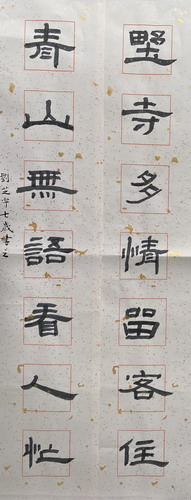 野寺多情留客住
青山無語看人忙
劉芝宇七歲書之